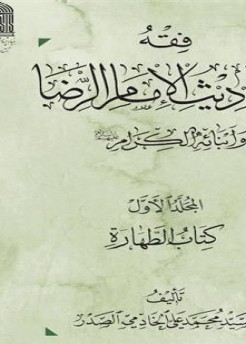 فقه
اديث الإمام الرضا
وأبنائه الكرام
المجلد الأول
كتاب الطهارة
تأليف
سيد محمد علي الخادمي الصدر